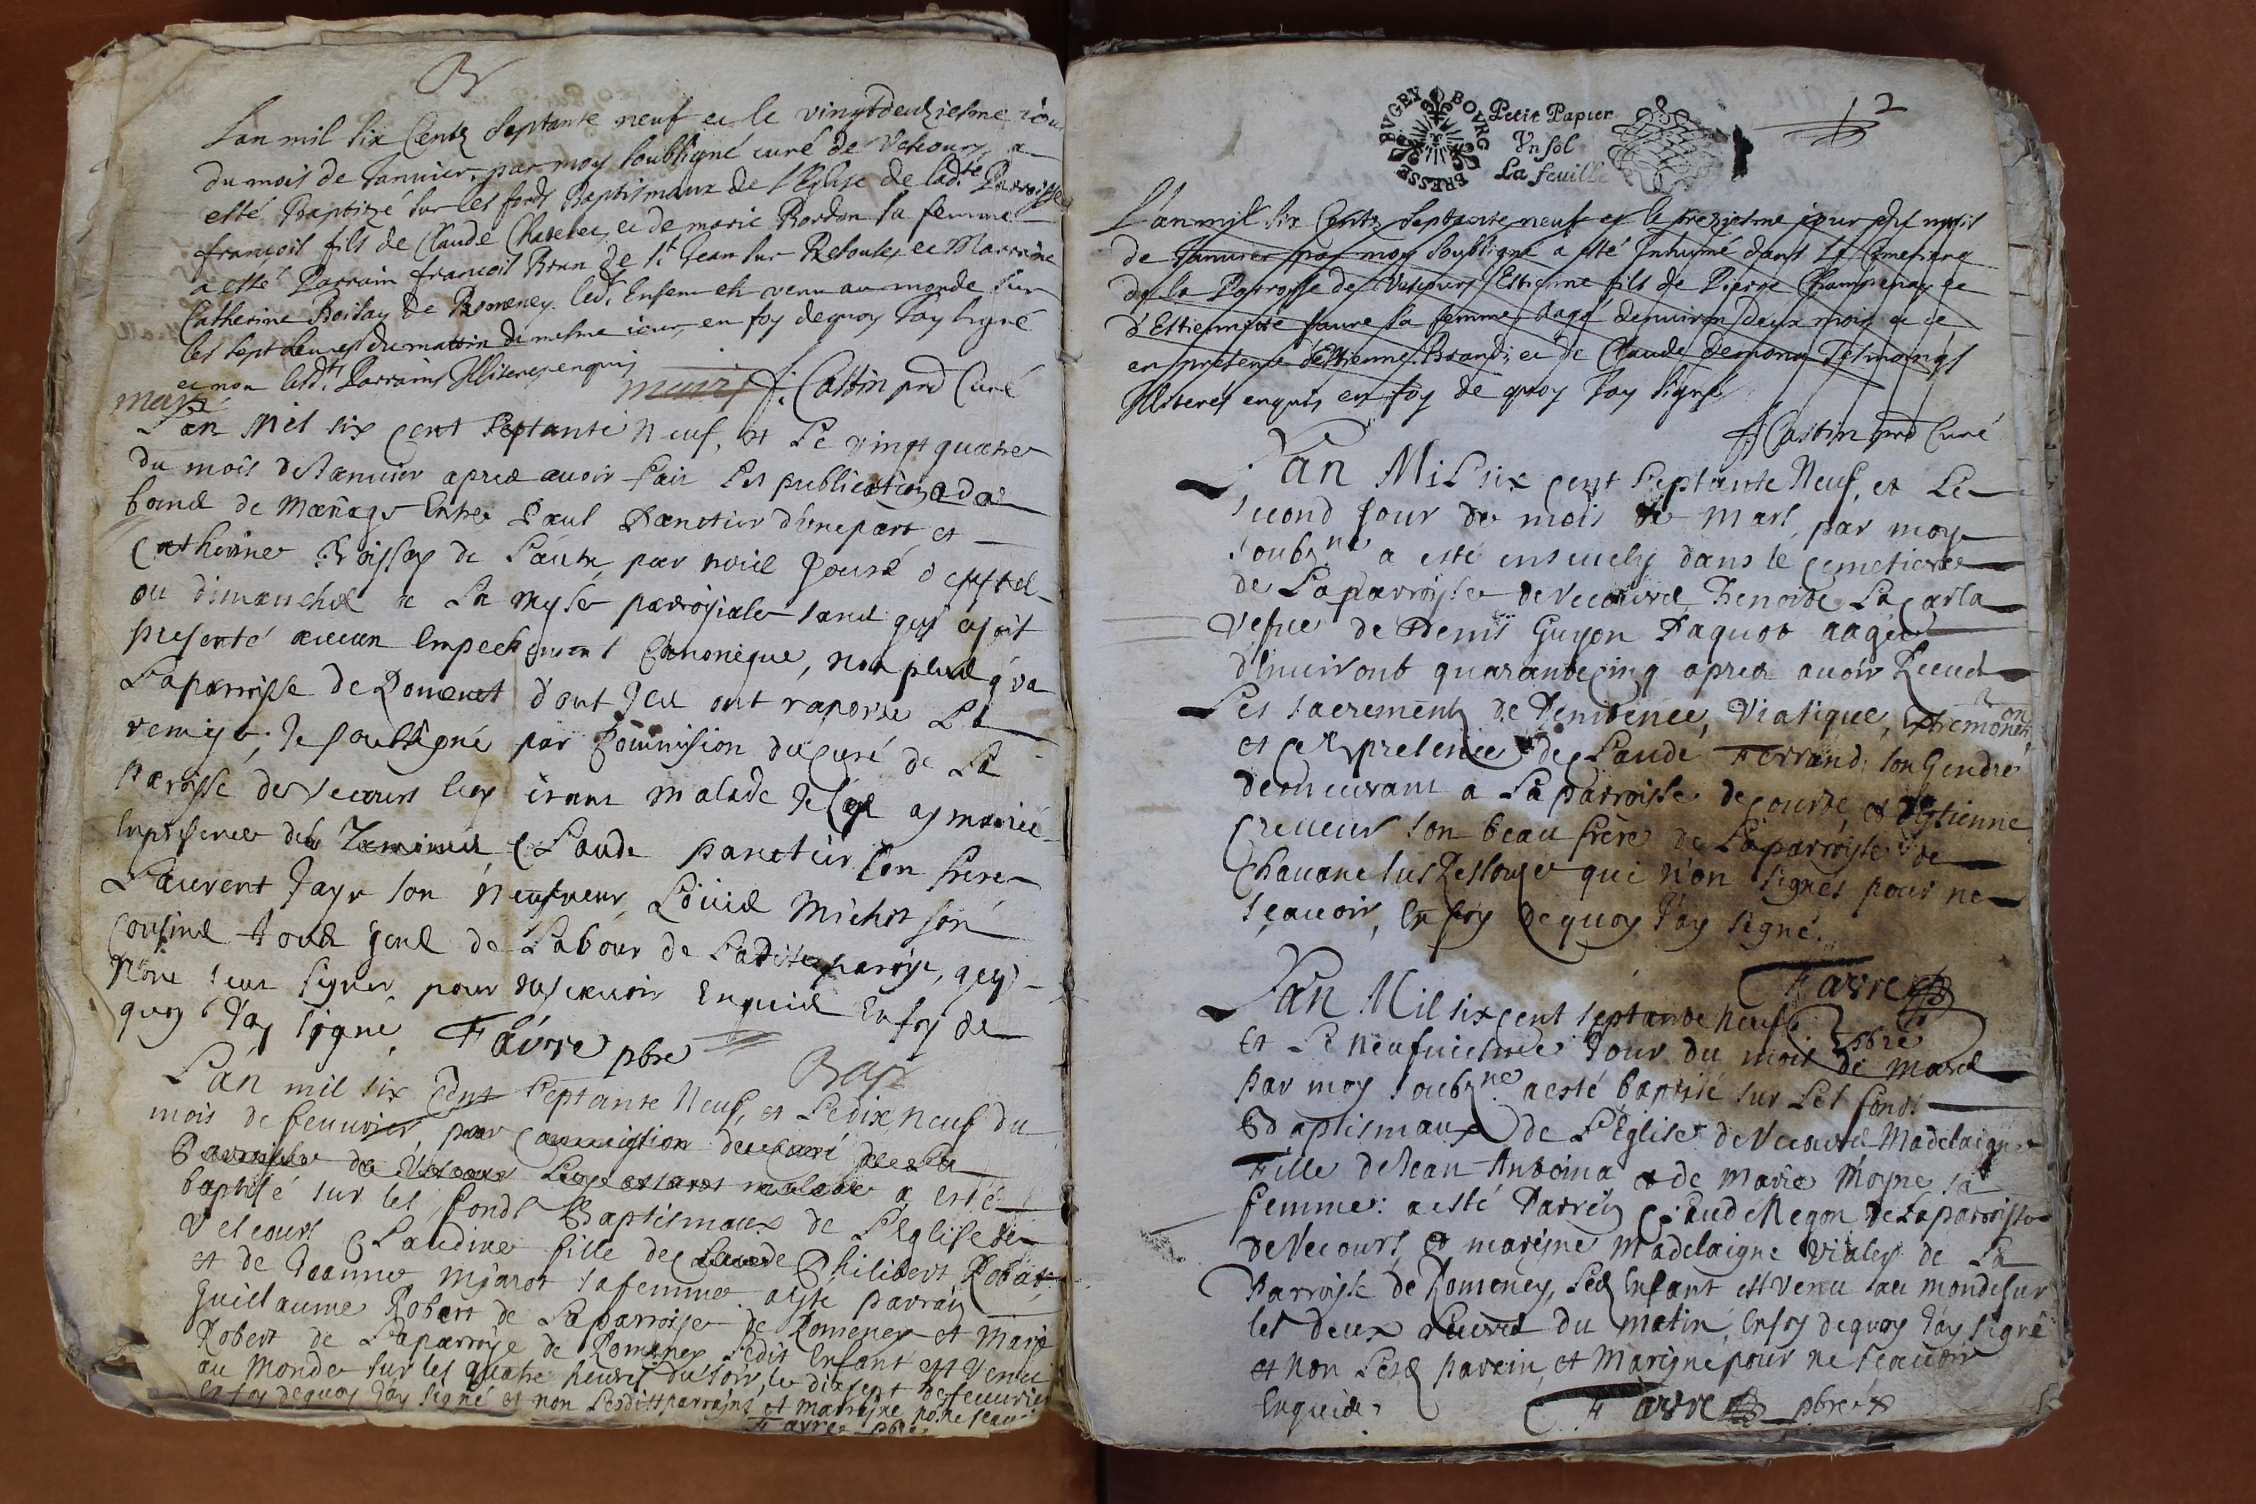 L'an mil six Centz Septante neuf et le vingtdeuziesme iour
du mois de Janvier par moy soubsigné curé de Vescours a
esté Baptizé sur les fonds Baptismaux de l'Eglise de lad.te Parroisse
francois fils de Claude et de marie Bordon sa femme
a esté Parrain francois Brun de St Jean sur Resouse et Marraine
Catherine Boisay de Romeney led. Enfent est venu au monde sur
les sept heures du mattin du mesme iour, en foy dequoy Jay signé
et non lesd.ts Parrains Illiterez enquis
F. Castin prd Curé
L'an Mil six cent septante Neuf, et Le vingt quatre
du mois de Januier apres auoir fait les publications des
bans de Mariage Entre Paul Panetier d'une part, et
Catherine Boissay de L'autre par trois Jours de festes
ou dimanches a La Messe parroissiale sans qu'il aist
presenté aucun Empechement Canonique, non plus qu'a
La parroisse de Romenet d'ont Jceu ont raporté La
remise, Je soubsigné par Commission du Curé de La
Paroisse de Vecours leq estant Malade Je les ay marié
En presence des Temoins, Claude panetier son frere
Laurent Jayr son Neufueur, Louis Michot son
Cousine tous gens de Labour de Ladite parroisse, qui
N'one seut signer pour ne scauoir Enquis En foy de
quoy J'ay signé. Favre pbre
Bap
L'an mil six Cent septante Neuf, et Le dix neuf du
mois de feuurier, par Commission du Curé de La
Parroisse de Vescours Leq estant malade a esté
baptisé sur les fonds Baptismaux de L'Eglise de
Vescours Claudine fille de Claude Philibert Robat
et de Jeanne Mjarot sa femme. a esté parrain
Guillaume Robert de La parroise de Romeney et Marie
Robert de La parroise de Romeney Ledit Enfant est Venu
au Monde sur les quatre heures du soir, le dixsept de feuurier
En foy dequoy J'ay signé et non Lesdits parrains et marraine po. ne scauoir
Favre pbre
BVGEY BOVRG BRESSE
Petit Papier
Vn sol
La feuille
2
L'an mil six Centz Septante neuf et le treziesme iour du mois
de Janvier par moy soubsigné a esté Inhumé dans le Cimetiere
de la Parroisse de Vescours Estienne fils de Pierre Champenay et
d'Estiennette faure sa femme, aagé denuiron deux mois et ce
en presence d'Estienne Brandi et de Claude Demons Tesmoings
Illiteres enquis en foy de quoy Jay signé
F. Castin prd Curé
L'an Mil six cent septante Neuf, et Le
second Jour du mois de Mars, par moy
soubz.né a esté enseuely dans le cemetiere
de La parroisse de Vecours Benoite La Carla
Vefue de Denis Guyon Paquot aagée
d'Enuiront quarantecinq apres auoir Receu
Les sacrements de Penitence, Viatique, Extremonction
et ce En presence de Claude Ferrand son Gendre
demeurant a La parroisse de courte, et d'Estienne
Creueur son beau frère de La parroisse de
Chauane sus Ressouse qui n'on signés pour ne
sçauoir, En foy de quoy J'ay signé.
Favre
pbre
L'an Mil six cent septante Neuf
Et Le neufuiesme Jour du mois de Mars
par moy soubz.né a esté baptisé sur Les fonds
Baptismaux de L'Eglise de Vecours Madelaigne
Fille de Jean Antoina et de Marie Moyne sa
femme: a esté Parrein Claude Regon de La parroisse
de Vecours et mareine Madelaigne Vialey de La
Parroisse de Romeney, Led Enfant est Venu au monde sur
les deux heures du matin, En foy de quoy J'ay signé
et non Lesd parrein et Mareine pour ne scauoir
Enquis,
Favre pbre